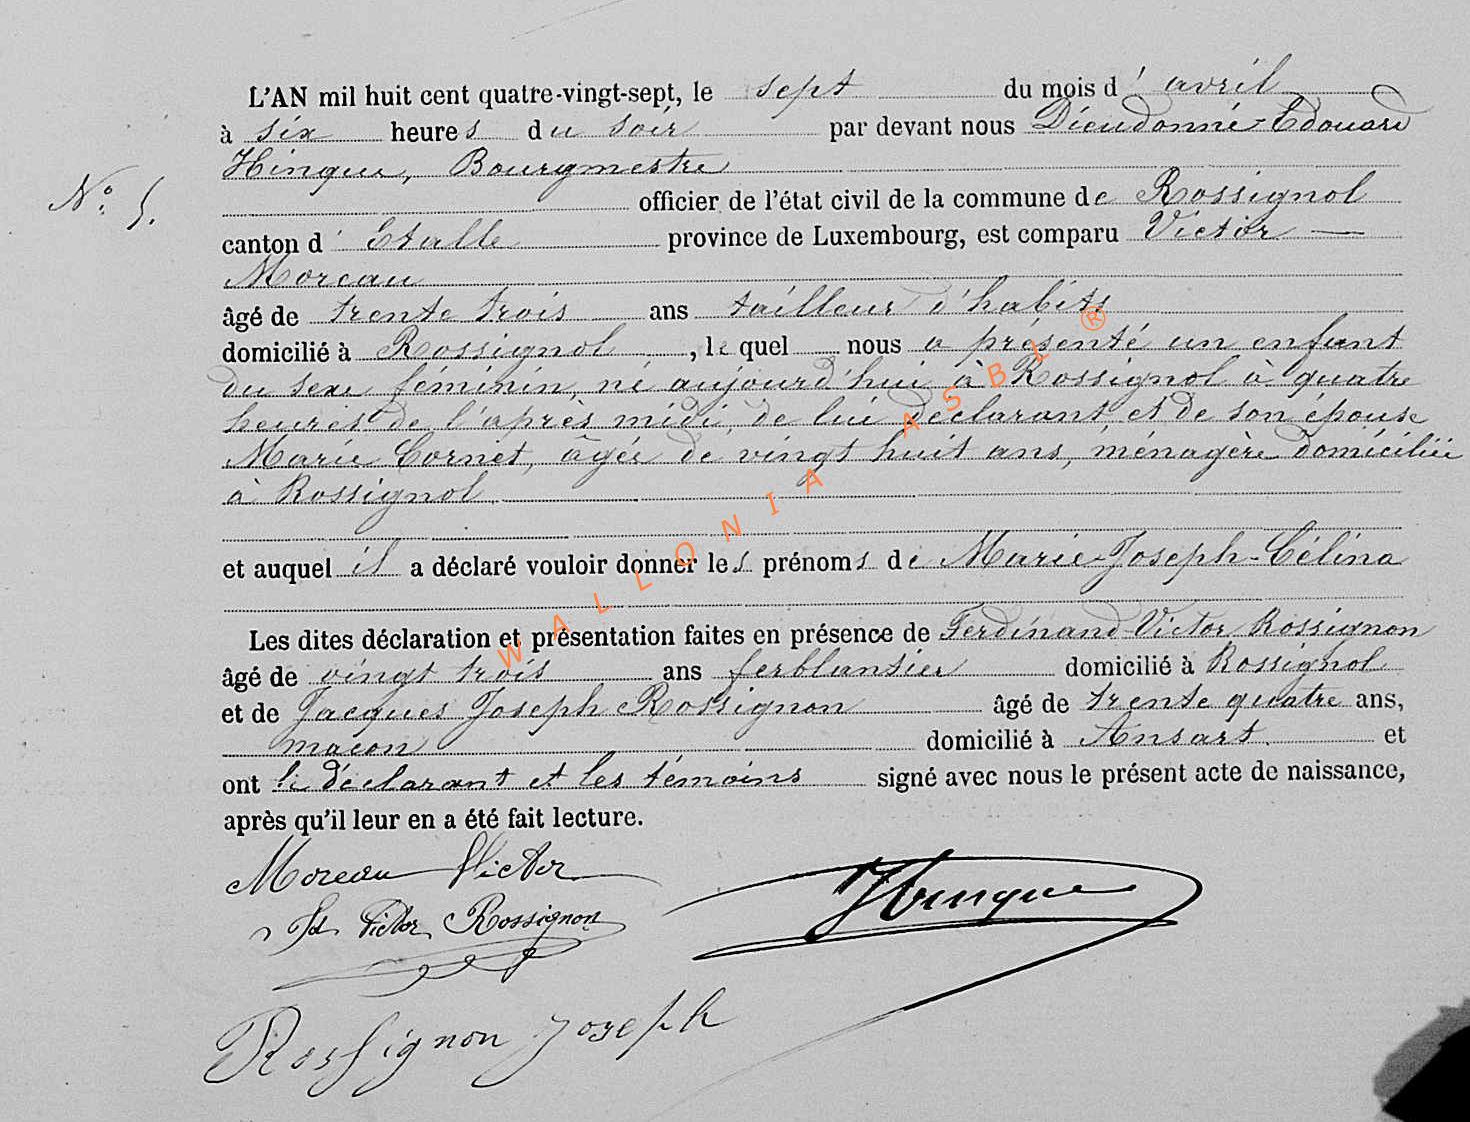 L'AN mil huit cent quatre-vingt-sept, le sept du mois d'avril
à six heures du soir par devant nous Dieudonné-Edouard
Hinque, Bourgmestre
N° 5.
officier de l'état civil de la commune de Rossignol
canton d'Etalle province de Luxembourg, est comparu Victor —
Moreau
âgé de trente trois ans tailleur d'habits
domicilié à Rossignol, lequel nous a présenté un enfant
du sexe féminin, né aujourd'hui à Rossignol à quatre
heures de l'après midi, de lui déclarant et de son épouse
Marie Cornet, âgée de vingt huit ans, ménagère domiciliée
à Rossignol
et auquel il a déclaré vouloir donner les prénoms de Marie-Joseph-Célina
Les dites déclaration et présentation faites en présence de Ferdinand-Victor Rossignon
âgé de vingt trois ans ferblantier domicilié à Rossignol
et de Jacques Joseph Rossignon âgé de trente quatre ans,
maçon domicilié à Ansart et
ont le déclarant et les témoins signé avec nous le présent acte de naissance,
après qu'il leur en a été fait lecture.
Moreau Victor
Hinque
Fd Victor Rossignon
Rossignon Joseph
WALLONIA ASBL ®